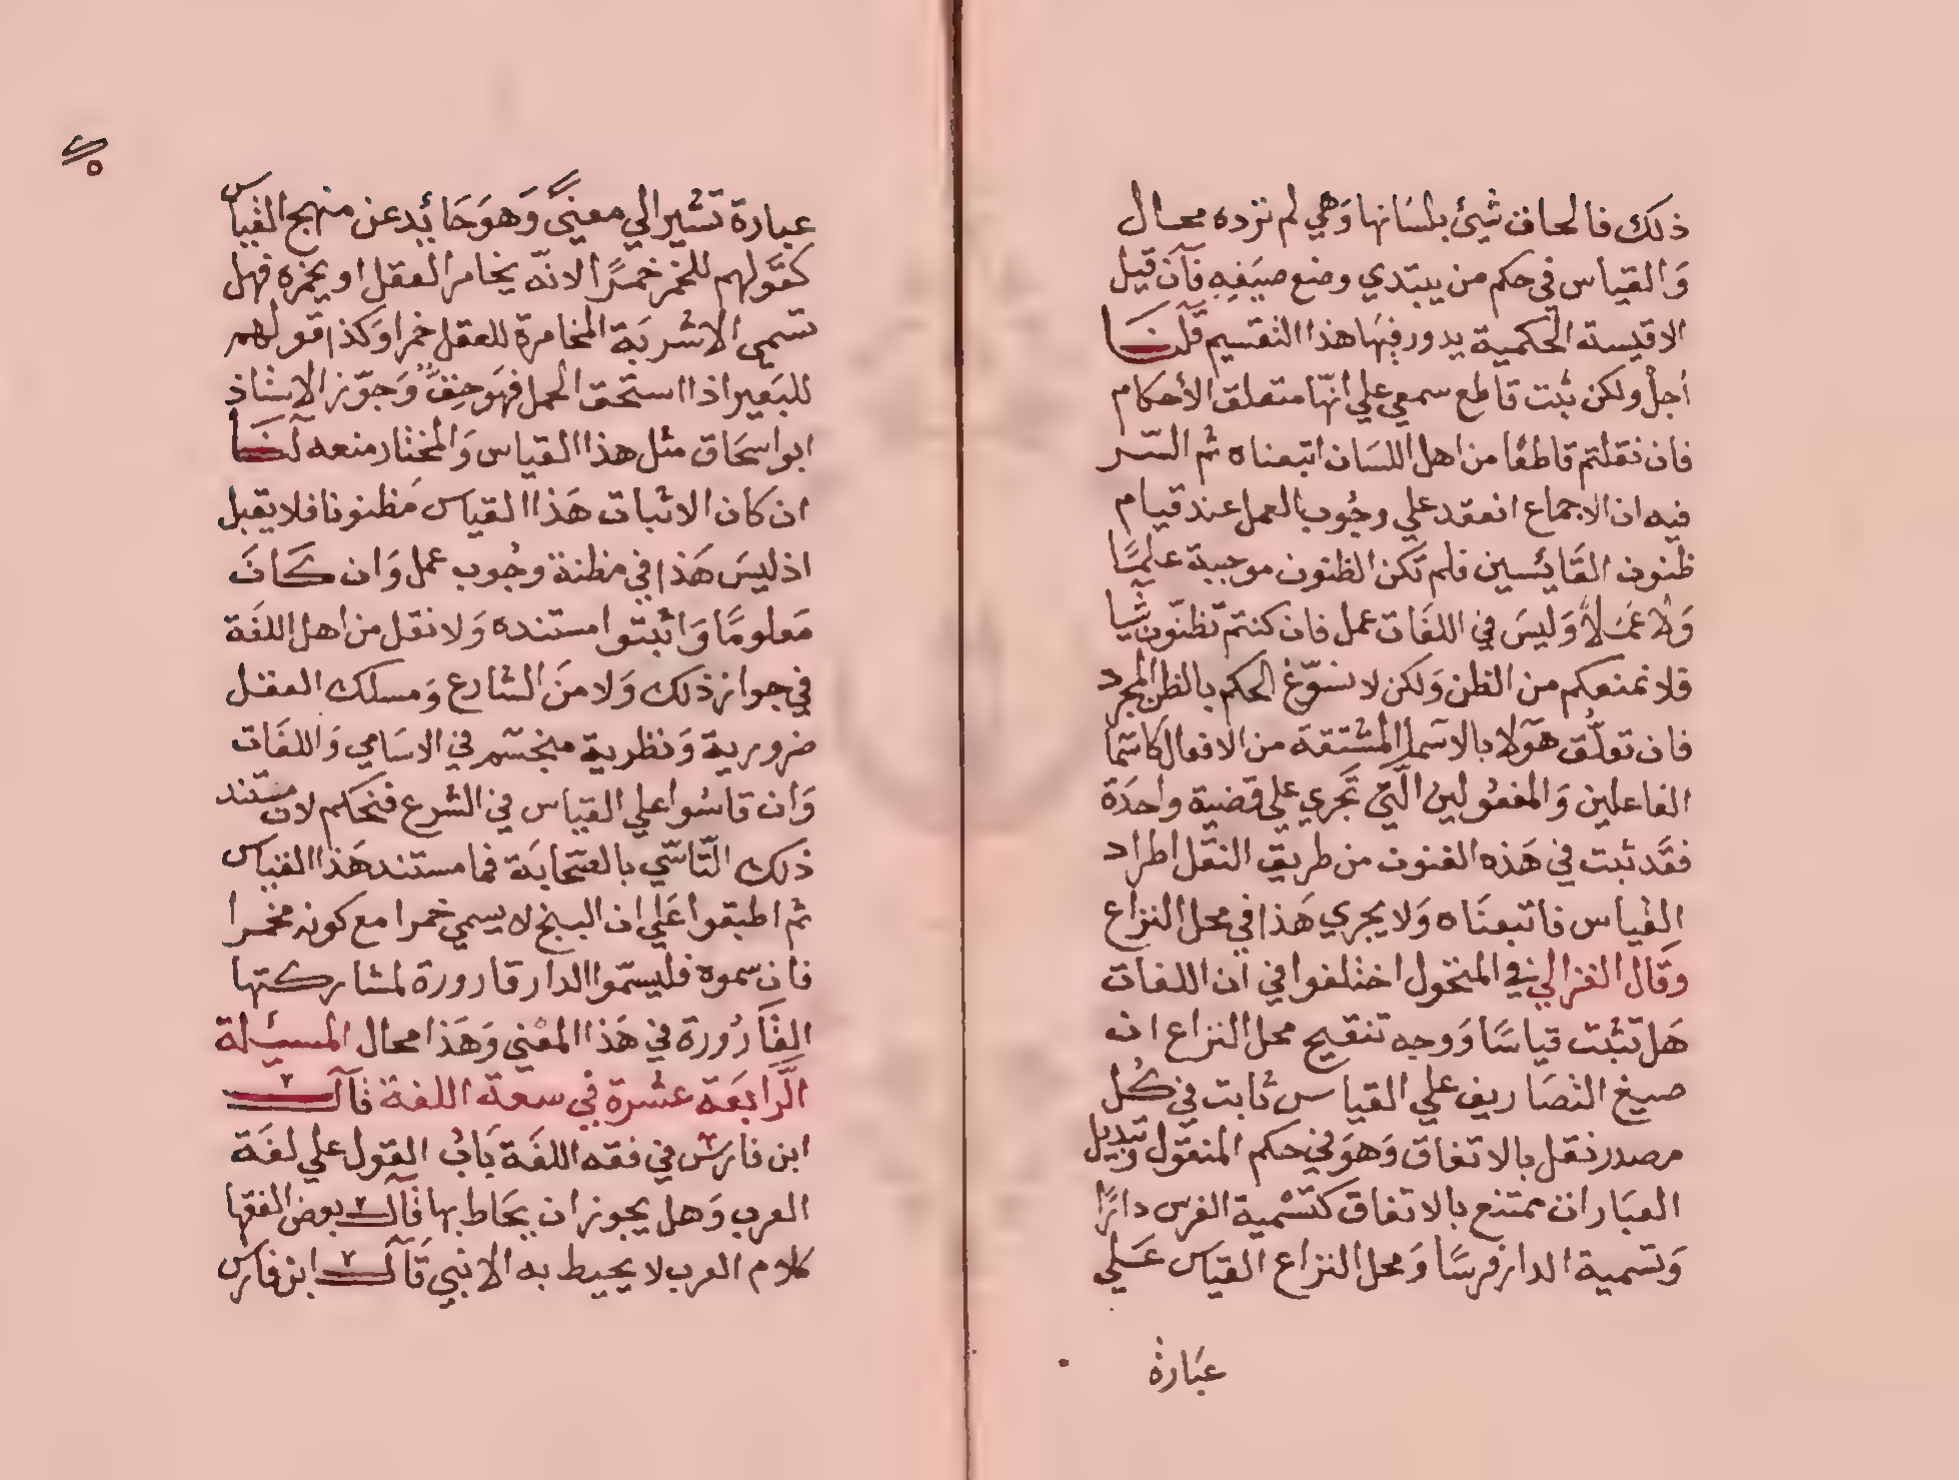 ذلك فالحاق شيئ بلسانها وهي لم ترده محال
والقياس في حكم من يبتدي وضع صيغه فان قيل
الاقيسة الحكمية يدور فيها هذا التقسيم قلنا
أجل ولكن ثبت قاطع سمعي علي انها متعلق الأحكام
فان نقلتم قاطعا من اهل اللسان اتبعناه ثم السر
فيه ان الاجماع انعقد علي وجوب العمل عند قيام
ظنون القائسين فلم تكن الظنون موجبة علما
ولا عملا وليس في اللغات عمل فان كنتم تظنون شيا
فلا نمنعكم من الظن ولكن لا نسوغ الحكم بالظن المجرد
فان تعلق هؤلا بالاسما المشتقة من الافعال كاسما
الفاعلين والمفعولين التي تجري علي قضية واحدة
فقد ثبت في هذه الفنون من طريق النقل اطراد
القياس فاتبعناه ولا يجري هذا في محل النزاع
وقال الغزالي في المنخول اختلفوا في ان اللغات
هل تثبت قياسا ووجه تنقيح محل النزاع ان
صيغ التصاريف علي القياس ثابت في كل
مصدر نقل بالاتفاق وهو في حكم المنقول وتبديل
العبارات ممتنع بالاتفاق كتسمية الفرس دارا
وتسمية الدار فرسا ومحل النزاع القياس علي
عبارة
عبارة تشير الي معنى وهو حائد عن منهج القياس
كقولهم للخمر خمرا لانه يخامر العقل او يخمره فهل
تسمي الاشربة المخامرة للعقل خمرا وكذا قولهم
للبعير اذا استحق الحمل فهو حق وجوز الاستاذ
ابو اسحاق مثل هذا القياس والمختار منعه لنا
ان كان الاثبات هذا القياس مظنونا فلا يقبل
اذ ليس هذا في مظنة وجوب عمل وان كان
معلوما واثبتوا مستنده ولا نقل من اهل اللغة
في جواز ذلك ولا من الشارع ومسلك العقل
ضرورية ونظرية منحسم في الاسامي واللغات
وان قاسوا علي القياس في الشرع فتحكم لان مستند
ذلك التاسي بالصحابة فما مستند هذا القياس
ثم اطبقوا علي ان البنج لا يسمي خمرا مع كونه مخمرا
فان سموه فليسموا الدار قارورة لمشاركتها
القارورة في هذا المعني وهذا محال المسئلة
الرابعة عشرة في سعة اللغة قال
ابن فارس في فقه اللغة باب القول علي لغة
العرب وهل يجوز ان يحاط بها قال بعض الفقها
كلام العرب لا يحيط به الا نبي قال ابن فارس